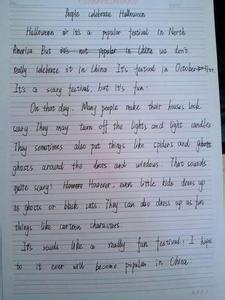 People celebrate Halloween
Halloween is a popular festival in North
America. But it's not popular in China. we don't
really celebrate it in China. It's festival in October
It's a scary festival, but it's fun.
On that day. Many people make their houses look
scary. They may turn off the lights and light candles
They sometimes also put things like spiders and ghosts
ghosts around the doors and windows. That sounds
quite scary! However, even little kids dress up
as ghosts or black cats. They can also dress up as fun
things like cartoon characters.
It's sounds like a really fun festival! I hope
to it ever will become popular in China.